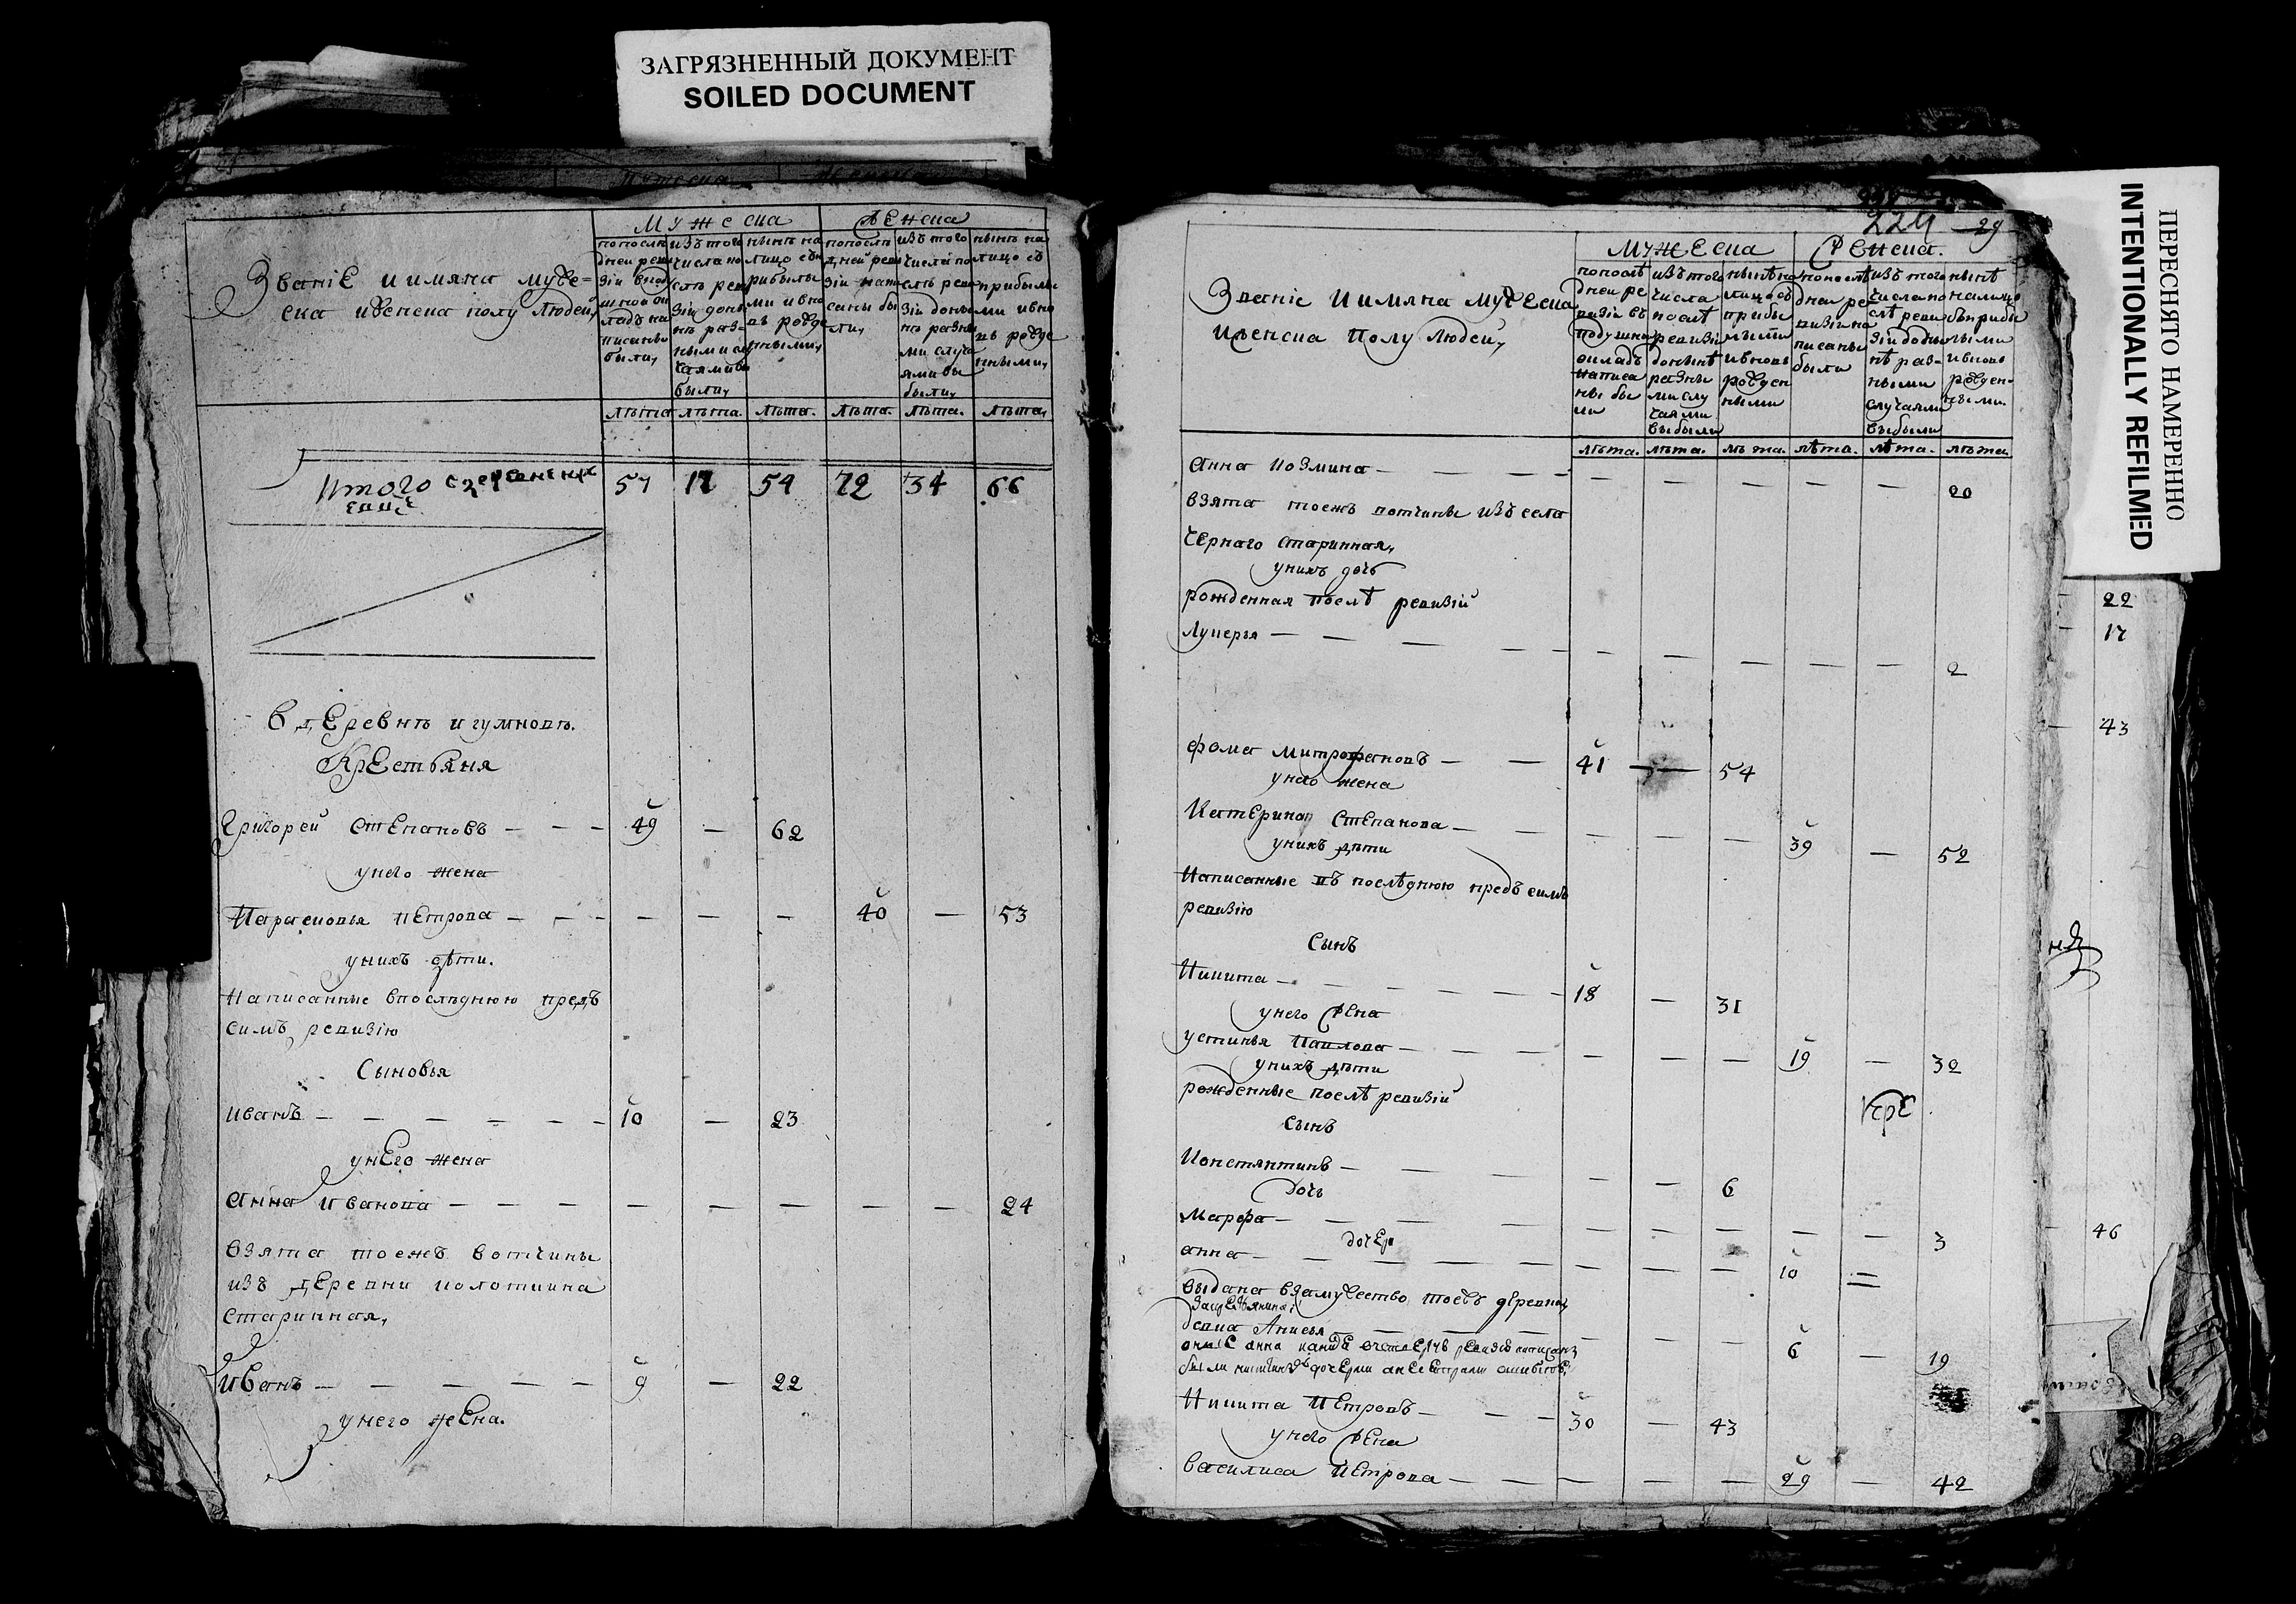 ЗАГРЯЗНЕННЫЙ ДОКУМЕНТ
SOILED DOCUMENT
Званіе и имяна муже=
ска и женска полу людей,
Мужеска
Женска
попослѣ
дней реви
зіи вподу
шной ок
ладъ на
писаны
были,
изъ того
числа по
слѣ реви
зіи доны
нѣ раз-
ными слу
чаями вы
были,
нынѣ на
лицо съп
рибылы
ми и вно
въ рожде
нными,
попослѣ
дней реви
зіи напи
саны бы
ли,
изъ того
числа по
слѣ реви
зіи доны
нѣ разны
ми случа
ями вы
были,
нынѣ на
лицо съ
прибылы
ми и вно
въ рожде
нными,
лѣта лѣта. лѣта. лѣта. лѣта. лѣта,
Итого
57 17 54 72 34 66
В деревнѣ игумновѣ.
Крестьяня
Григорей Степановъ — — — 49 — 62
у него жена
Парасковья Петрова — — — — — — 40 — 53
у нихъ дѣти.
Написанные впослѣднюю предъ
симъ ревизію
Сыновья
Иванъ — — — — — — 10 — 23
у него жена
Анна Иванова — — — — — — — — — 24
Взята тоежъ вотчины
изъ деревни
старинная,
Иванъ — — — — — 9 — 22
у него жена.
224 29
Званіе и имяна мужеска
и женска полу людей,
Мужеска
Женска.
попослѣ
дней ре
визіи въ
подушно
окладъ
написа
ны бы
ли
изъ того
числа
послѣ
ревизіи
донынѣ
разны
ми слу
чаями
выбыли
нынѣ на
лицо съ
прибы
лыми
и вновь
рожден
ными
попослѣ
дней ре
визіи на
писаны
были
изъ того
числа по
слѣ реви
зіи доны
нѣ раз-
ными
случаями
выбыли
нынѣ
налицо
съ прибы
лыми
и вновь
рожден-
ными.
лѣта. лѣта. лѣта. лѣта. лѣта. лѣта
Анна Козмина — — — — — — — — — 20
взята тоежъ вотчины изъ села
Чернаго старинная,
у нихъ дочь
рожденная послѣ ревизій
Лукерья — — — — — — — — — — 2
Фома Митрофановъ — — 41 — 54
у него жена
Катерина Степанова — — — — — 39 — 52
у нихъ дѣти
Написанные въ послѣднюю предъ симъ
ревизію
Сынъ
Никита — — — — — — 18 — 31
у него жена
Устинья Павлова — — — — — — — 19 — 32
у нихъ дѣти
рожденные послѣ ревизій
Кре
сынъ
Констянтинъ — — — — — 6
дочь
Марфа — — — — — — — — — 3
дочер
Анна — — — — — — — — 10 =
выдана взамужество тоежъ деревни
девка Анисья — — — — — — — 6 — 19
Никита Петровъ — — — 30 — 43
у него жена
Василиса Петрова — — — — — — 29 — 42
ПЕРЕСНЯТО НАМЕРЕННО
INTENTIONALLY REFILMED
22
17
43
46